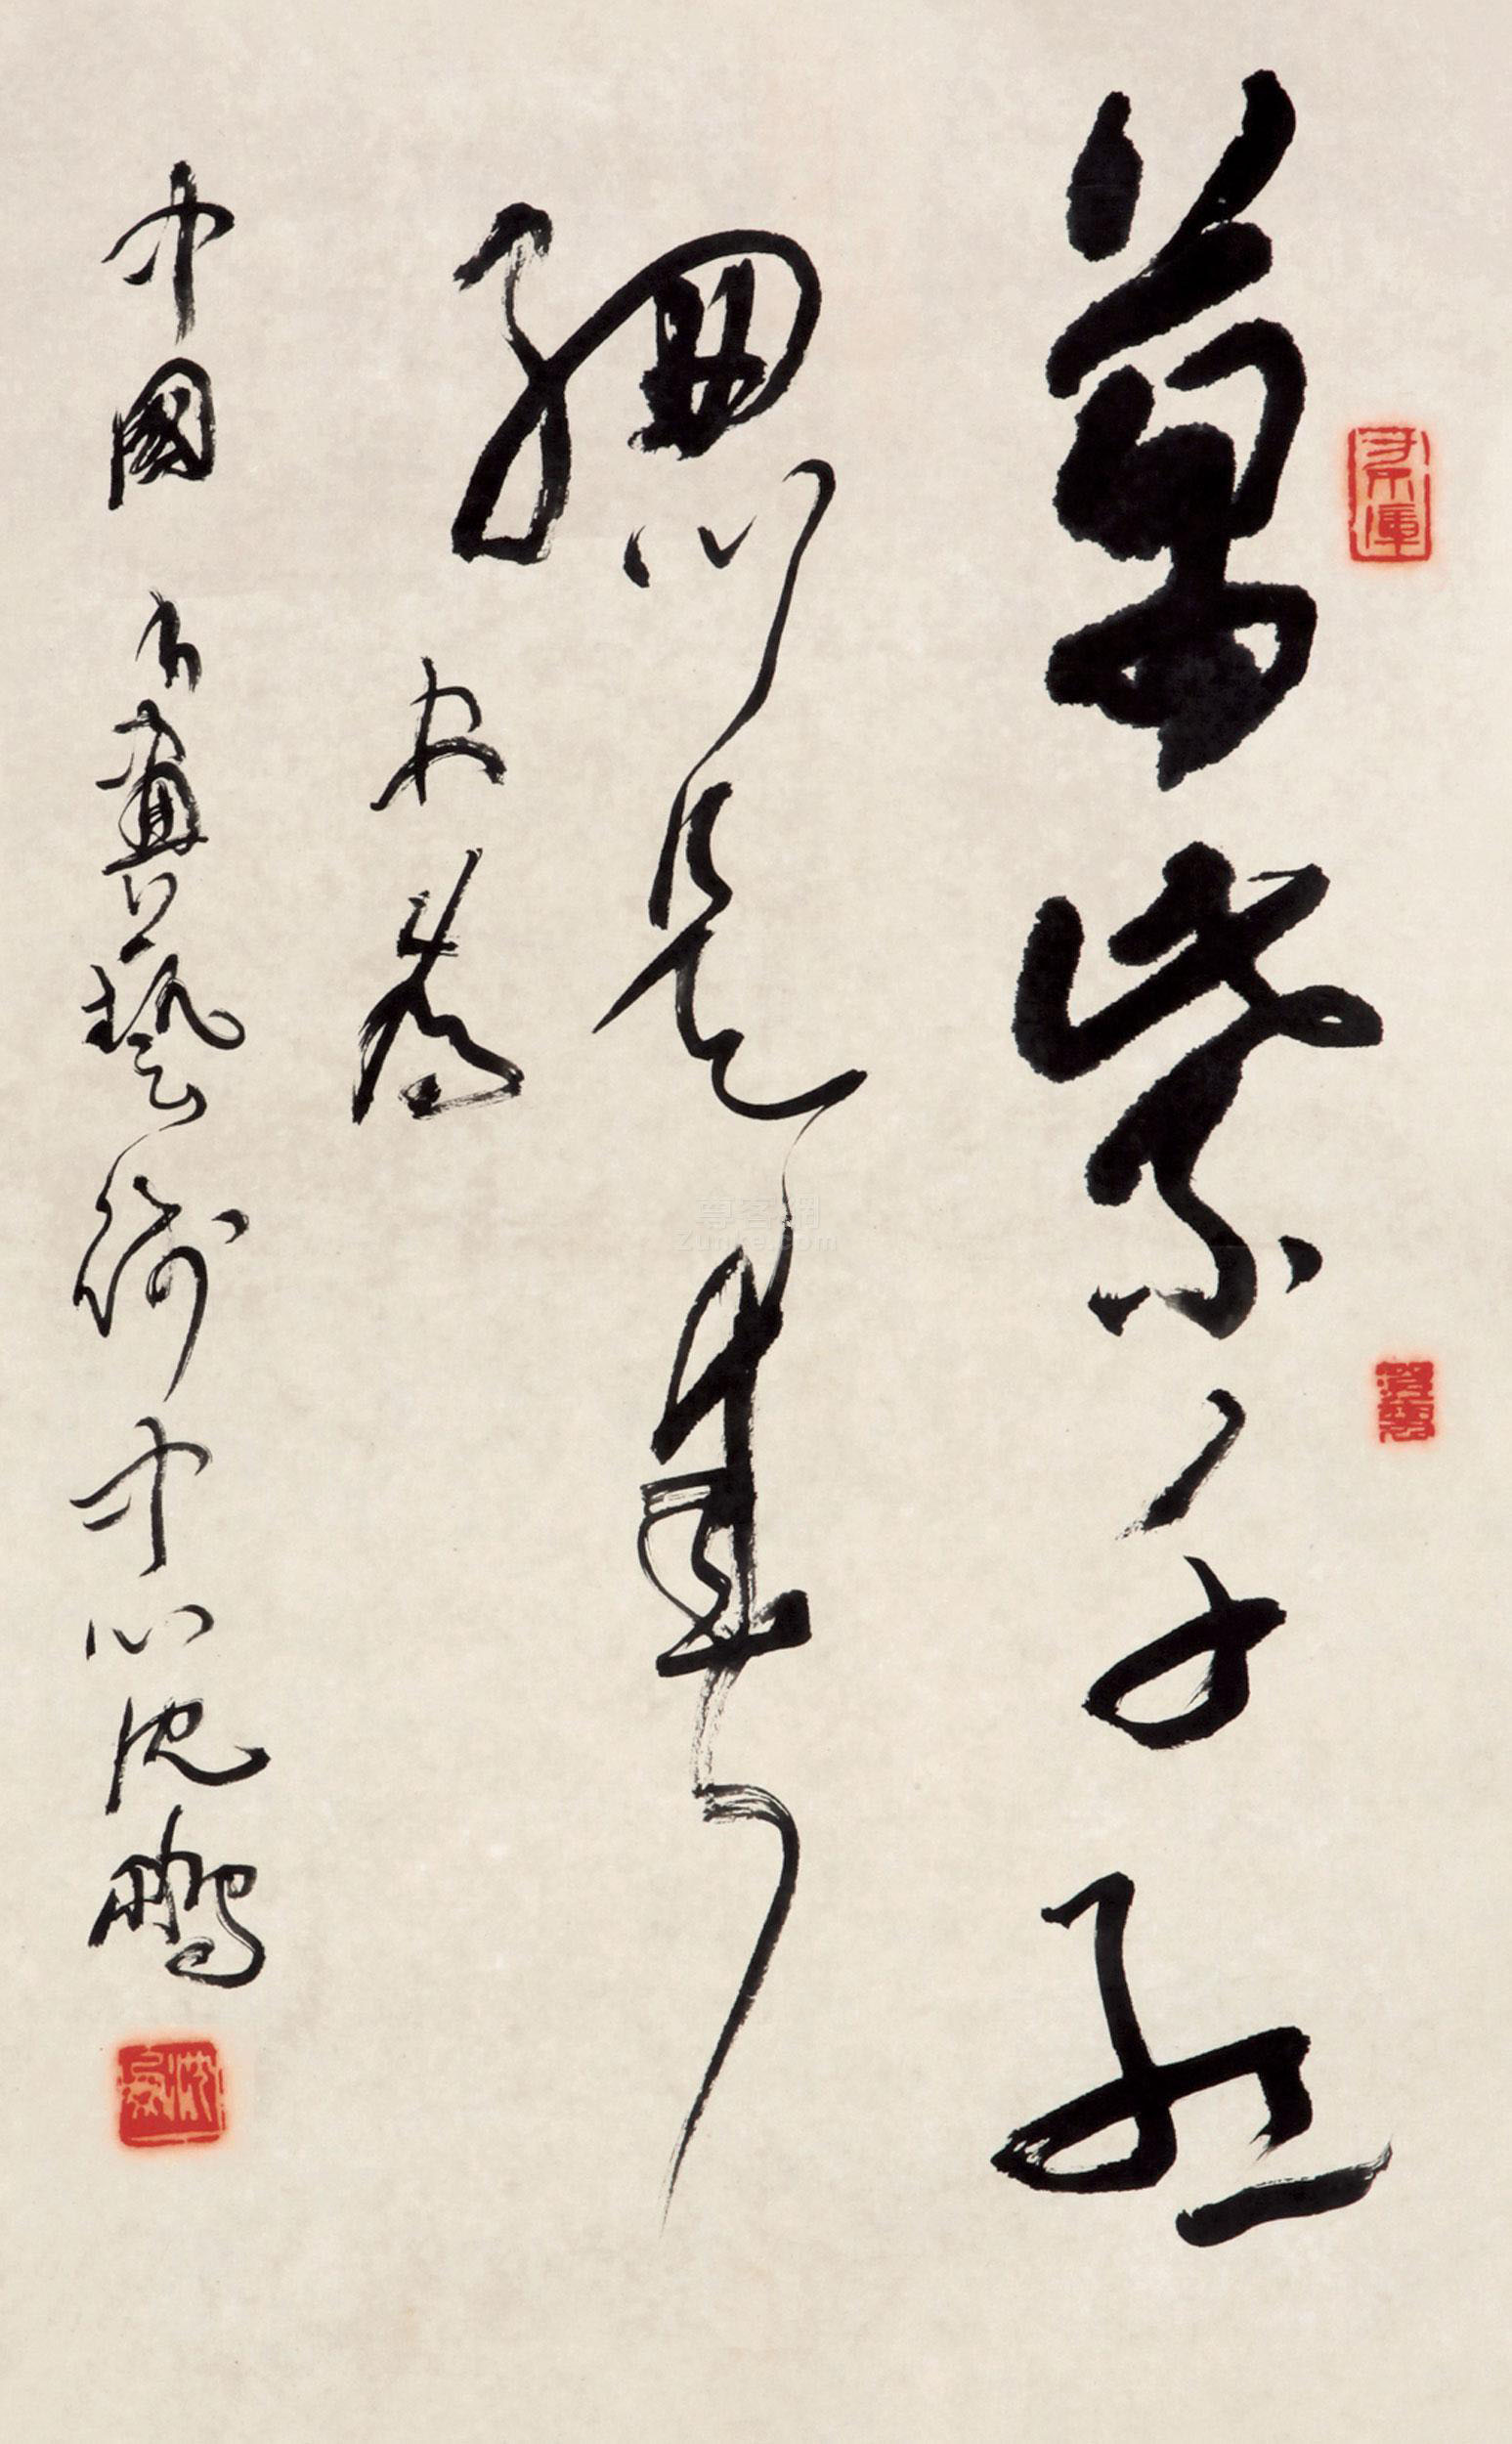 萬紫千紅
總是春
書爲
中國書畫藝術中心沈鵬
尊客網
Zunke.com